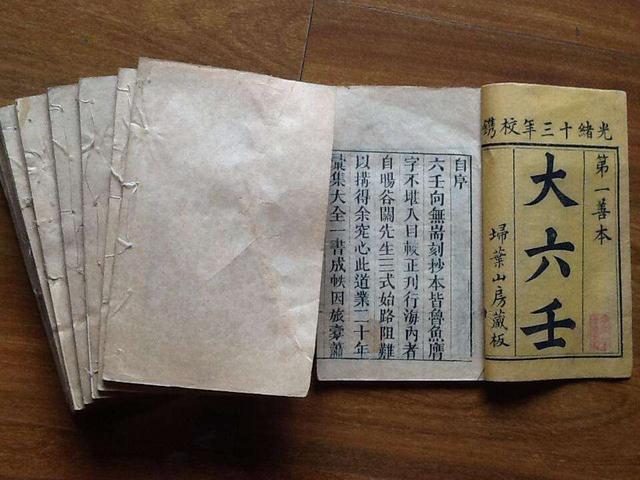 光緒十三年校鐫
第一善本
大六壬
埽葉山房藏板
自序
六壬向無耑刻抄本皆魯魚
字不堪入目較正刊行海內者
自暘谷闗先生三式始路阻難
以搆得余究心此道業二十年
彙集大全一書成帙因旅橐蕭